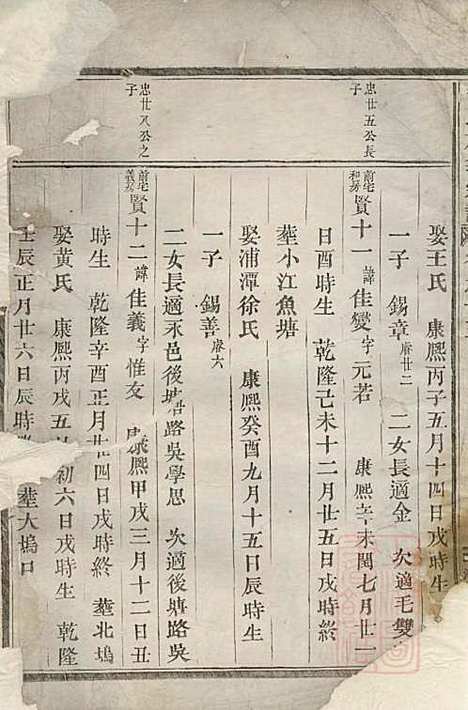 娶王氏 康熙丙子五月十四日戌時生
一子 錫章睿廿二 二女長適金 次適毛雙
忠廿五公長子
前宅和房賢十一諱佳燮字元若 康熙辛未閏七月廿一
日酉時生 乾隆己未十二月廿五日戌時終
塟小江魚塘
娶浦潭徐氏 康熙癸酉九月十五日辰時生
一子 錫善睿六
二女長適永邑後塘路吳學思 次適後塘路吳
忠廿八公之子
前宅義房賢十二諱佳義字惟友 康熙甲戌三月十二日丑
時生 乾隆辛酉正月廿四日戌時終 塟北塢
娶黃氏 康熙丙戌五月初六日戌時生 乾隆
壬辰正月廿六日辰時 塟大塢口